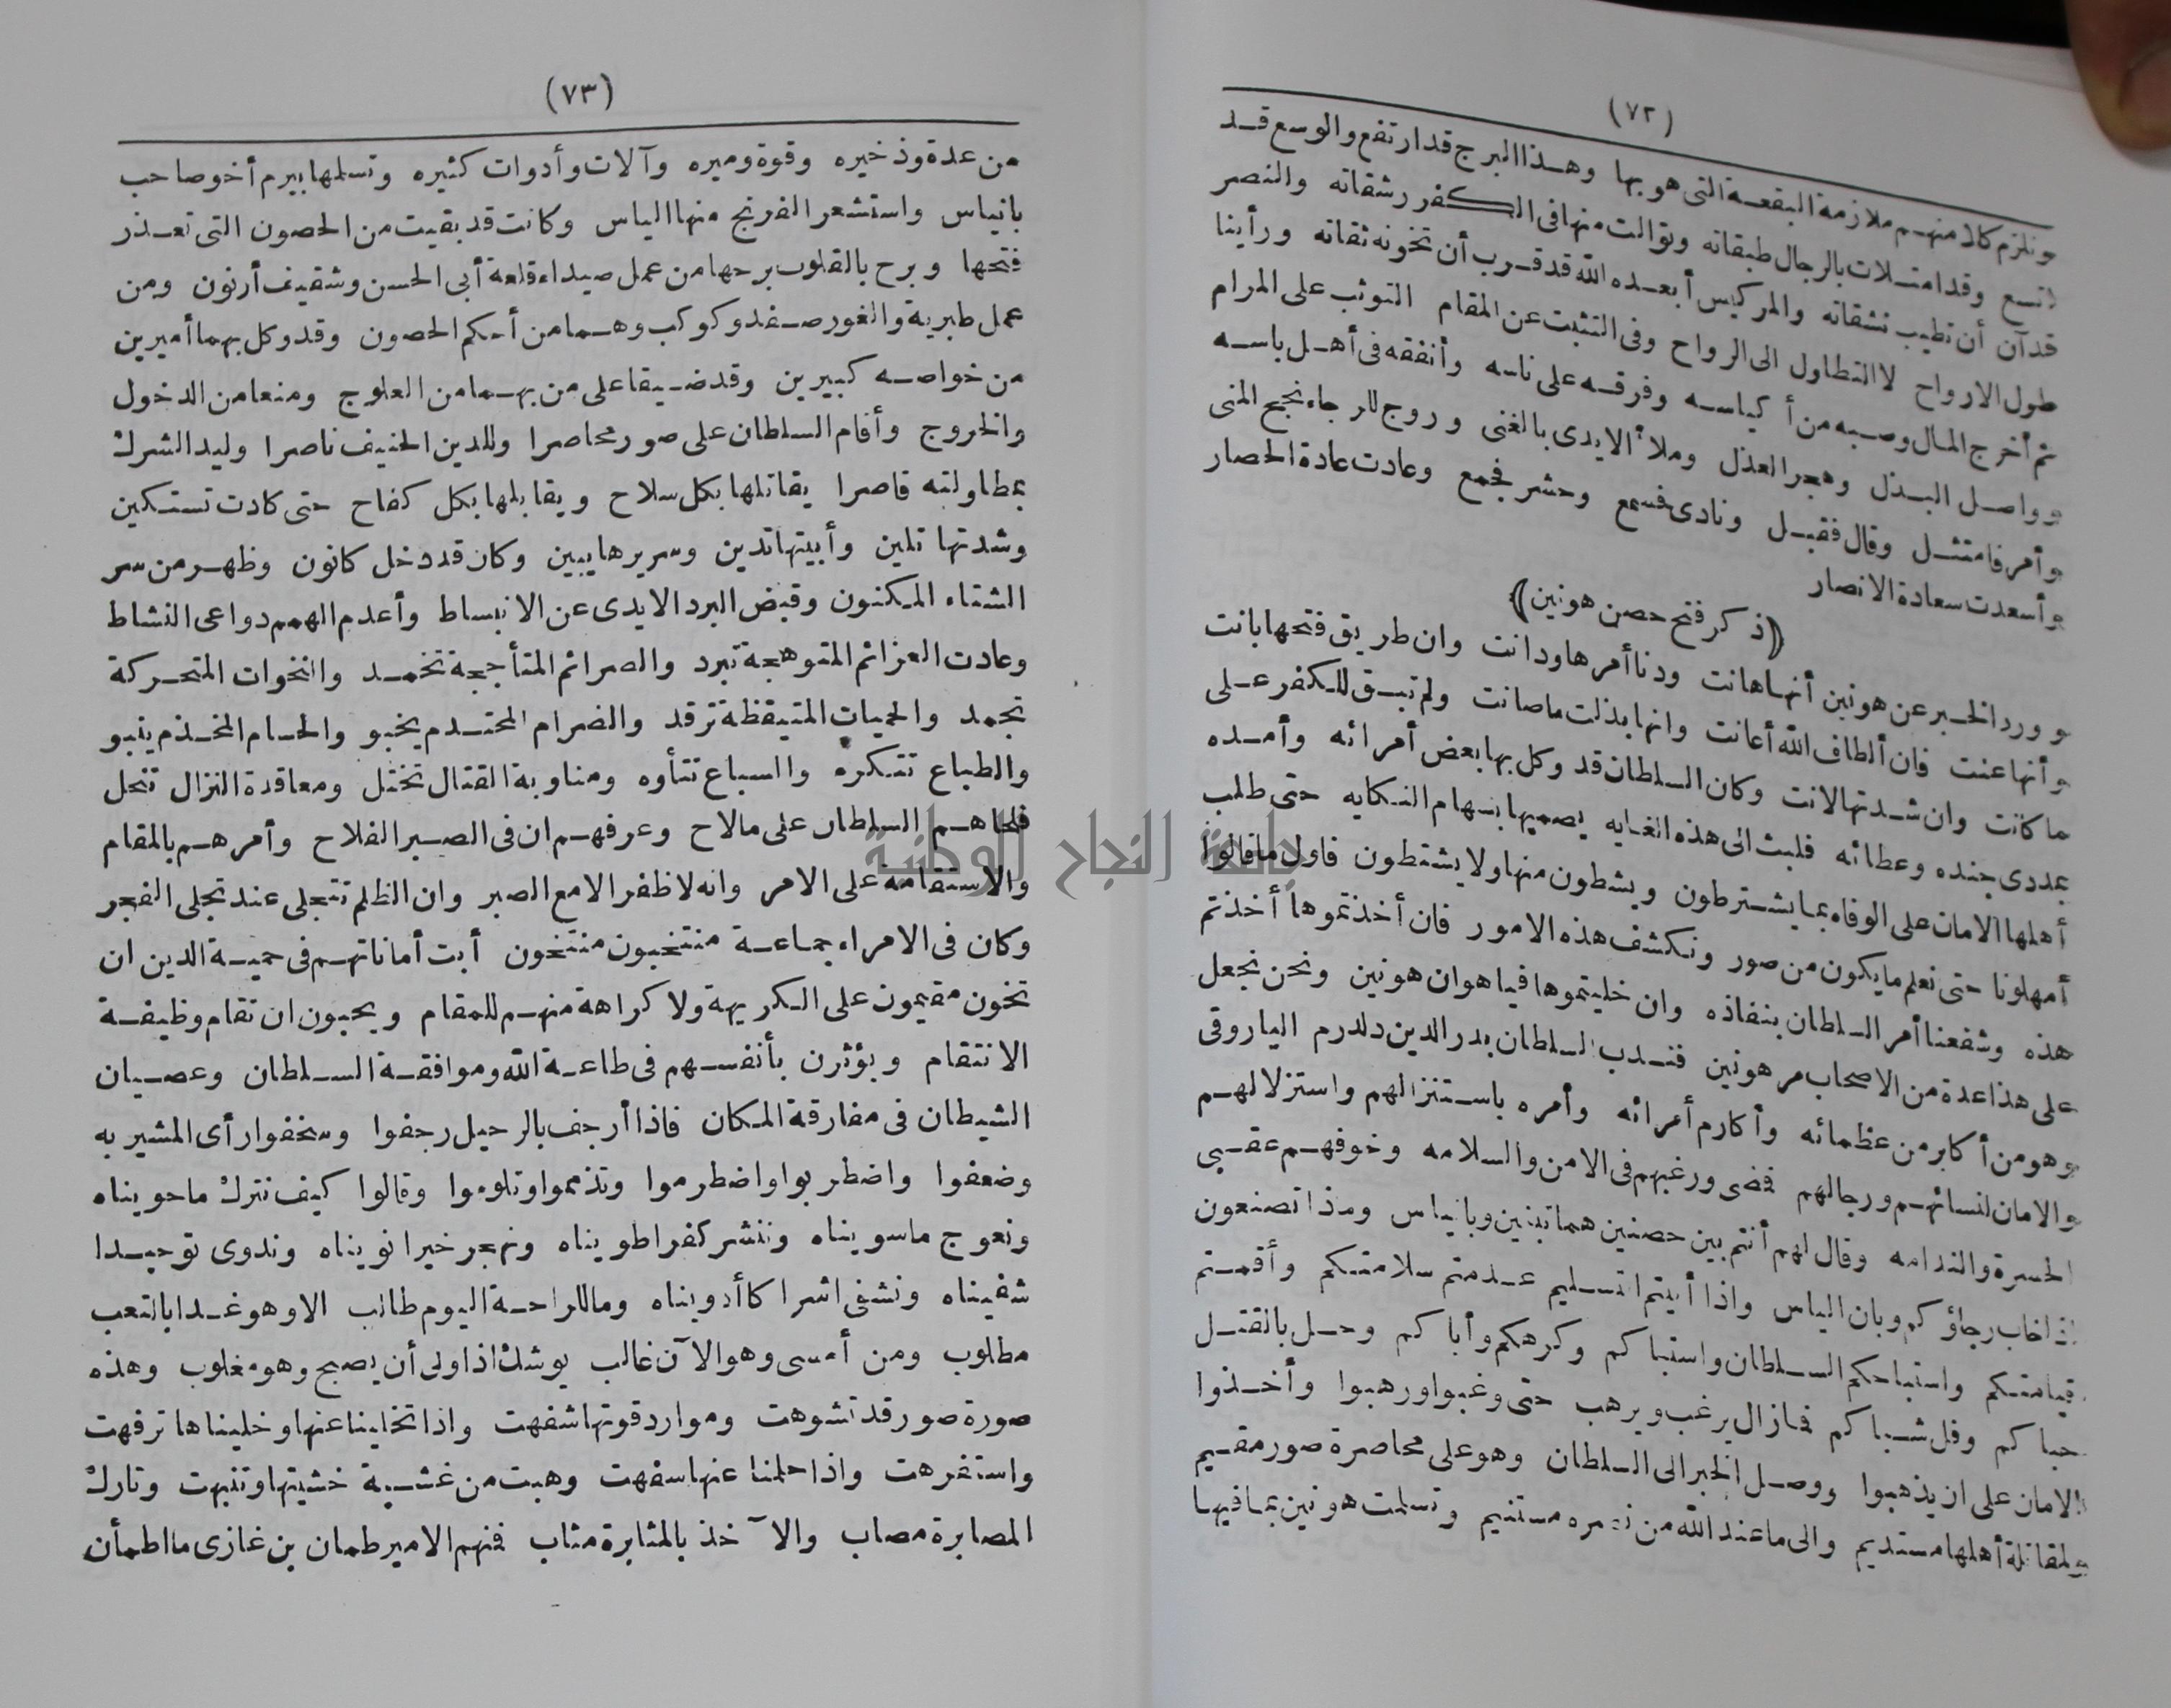 (٧٢)
ونلزم كلا منهم ملازمة البقعة التى هو بها وهذا البرج قد ارتفع والوسع قد
اتسع وقد امتلات بالرجال طبقاته وتوالت منها فى الكفر رشقاته والنصر
قد آن أن تطيب نشقاته والمركيس أبعده الله قد قرب أن تخونه ثقاته ورأينا
طول الارواح لا التطاول الى الرواح وفى التثبت عن المقام التوثب على المرام
ثم أخرج المال وصبه من أكياسه وفرقه على ناسه وأنفقه فى أهل باسه
وواصل البذل وهجر العذل وملأ الايدى بالغنى وروج للرجاء نجح المنى
وأمر فامتثل وقال فقبل ونادى فسمع وحشر فجمع وعادت عادة الحصار
وأسعدت سعادة الانصار
﴿ذكر فتح حصن هونين﴾
وورد الخبر عن هونين أنها هانت ودنا أمرها ودانت وان طريق فتحها بانت
وأنها عنت فان ألطاف الله أعانت وانها بذلت ما صانت ولم تبق للكفر على
ما كانت وان شدتها لانت وكان السلطان قد وكل بها بعض أمرائه وأمده
بمددى جنده وعطائه فلبث الى هذه الغايه يصميها بسهام النكايه حتى طلب
أهلها الامان على الوفاء بما يشترطون ويشطون منها ولا يشتطون فاول ما قالوا
أمهلونا حتى نعلم ما يكون من صور ونكشف هذه الامور فان أخذتموها أخذتم
هذه وشفعنا أمر السلطان بنفاذه وان خليتموها فيا هوان هونين ونحن نجعل
على هذا عدة من الاصحاب مرهونين فندب السلطان بدر الدين دلدرم الياروقى
وهو من أكابر عظمائه وأكارم أمرائه وأمره باستنزالهم واستزلالهم
والامان لنسائهم ورجالهم فمضى ورغبهم فى الامن والسلامه وخوفهم عقبى
الحسرة والندامه وقال لهم أنتم بين حصنين هما تبنين وبانياس وماذا تصنعون
اذا خاب رجاؤكم وبان الياس واذا أبيتم التسليم عدمتم سلامتكم وأقمتم
قيامتكم واستباحكم السلطان واستباكم وكرهكم وأباكم وحل بالقتل
حباكم وفل شباكم فما زال يرغب ويرهب حتى رغبوا ورهبوا وأخذوا
الامان على ان يذهبوا ووصل الخبر الى السلطان وهو على محاصرة صور مقيم
ولمقاتلة أهلها مستديم والى ما عند الله من نصره مستنيم وتسلمت هونين بما فيها
(٧٣)
من عدة وذخيره وقوة وميره وآلات وأدوات كثيره وتسلمها بيرم أخو صاحب
بانياس واستشعر الفرنج منها الياس وكانت قد بقيت من الحصون التى تعذر
فتحها وبرح بالقلوب برحها من عمل صيداء قلعة أبى الحسن وشقيف أرنون ومن
عمل طبرية والغور صفد وكوكب وهما من أحكم الحصون وقد وكل بهما أميرين
من خواصه كبيرين وقد ضيقا على من بهما من العلوج ومنعا من الدخول
والخروج وأقام السلطان على صور محاصرا وللدين الحنيف ناصرا وليد الشرك
بمطاولته قاصرا يقاتلها بكل سلاح ويقابلها بكل كفاح حتى كادت تستكين
وشدتها تلين وأبيتها تدين وسريرها يبين وكان قد دخل كانون وظهر من سر
الشتاء المكنون وقبض البرد الايدى عن الانبساط وأعدم الهمم دواعى النشاط
وعادت العزائم المتوهجة تبرد والصرائم المتأججة تخمد والنخوات المتحركة
تجمد والحميات المتيقظة ترقد والضرام المحتدم يخبو والحسام المخذم ينبو
والطباع تتكره والسباع تتأوه ومناوبة القتال تختل ومعاقدة النزال تنحل
فلحاهم السلطان على ما لاح وعرفهم ان فى الصبر الفلاح وأمرهم بالمقام
والاستقامة على الامر وانه لا ظفر الا مع الصبر وان الظلم تتجلى عند تجلى الفجر
وكان فى الامراء جماعة منتخبون منتخون أبت أماناتهم فى حمية الدين ان
تخون مقيمون على الكريهة ولا كراهة منهم للمقام ويحبون ان تقام وظيفة
الانتقام ويؤثرن بأنفسهم فى طاعة الله وموافقة السلطان وعصيان
الشيطان فى مفارقة المكان فاذا أرجف بالرحيل رجفوا وسخفوا رأى المشير به
وضعفوا واضطربوا واضطرموا وتذمموا وتلوموا وقالوا كيف نترك ما حويناه
ونعوج ما سويناه وننشر كفرا طويناه ونهجر خيرا نويناه وندوى توحيدا
شفيناه ونشفى اشراكا أدويناه وما للراحة اليوم طالب الا وهو غدا بالتعب
مطلوب ومن أمسى وهو الآن غالب يوشك اذا ولى أن يصبح وهو مغلوب وهذه
صورة صور قد تشوهت وموارد قوتها شفهت واذا تخلينا عنها وخليناها ترفهت
واستفرهت واذا حلمنا عنها سفهت وهبت من غشية خشيتها وتنبهت وتارك
المصابرة مصاب والآخذ بالمثابرة مثاب فنهم الامير طمان بن غازى ما اطمأن
جامعة النجاح الوطنية